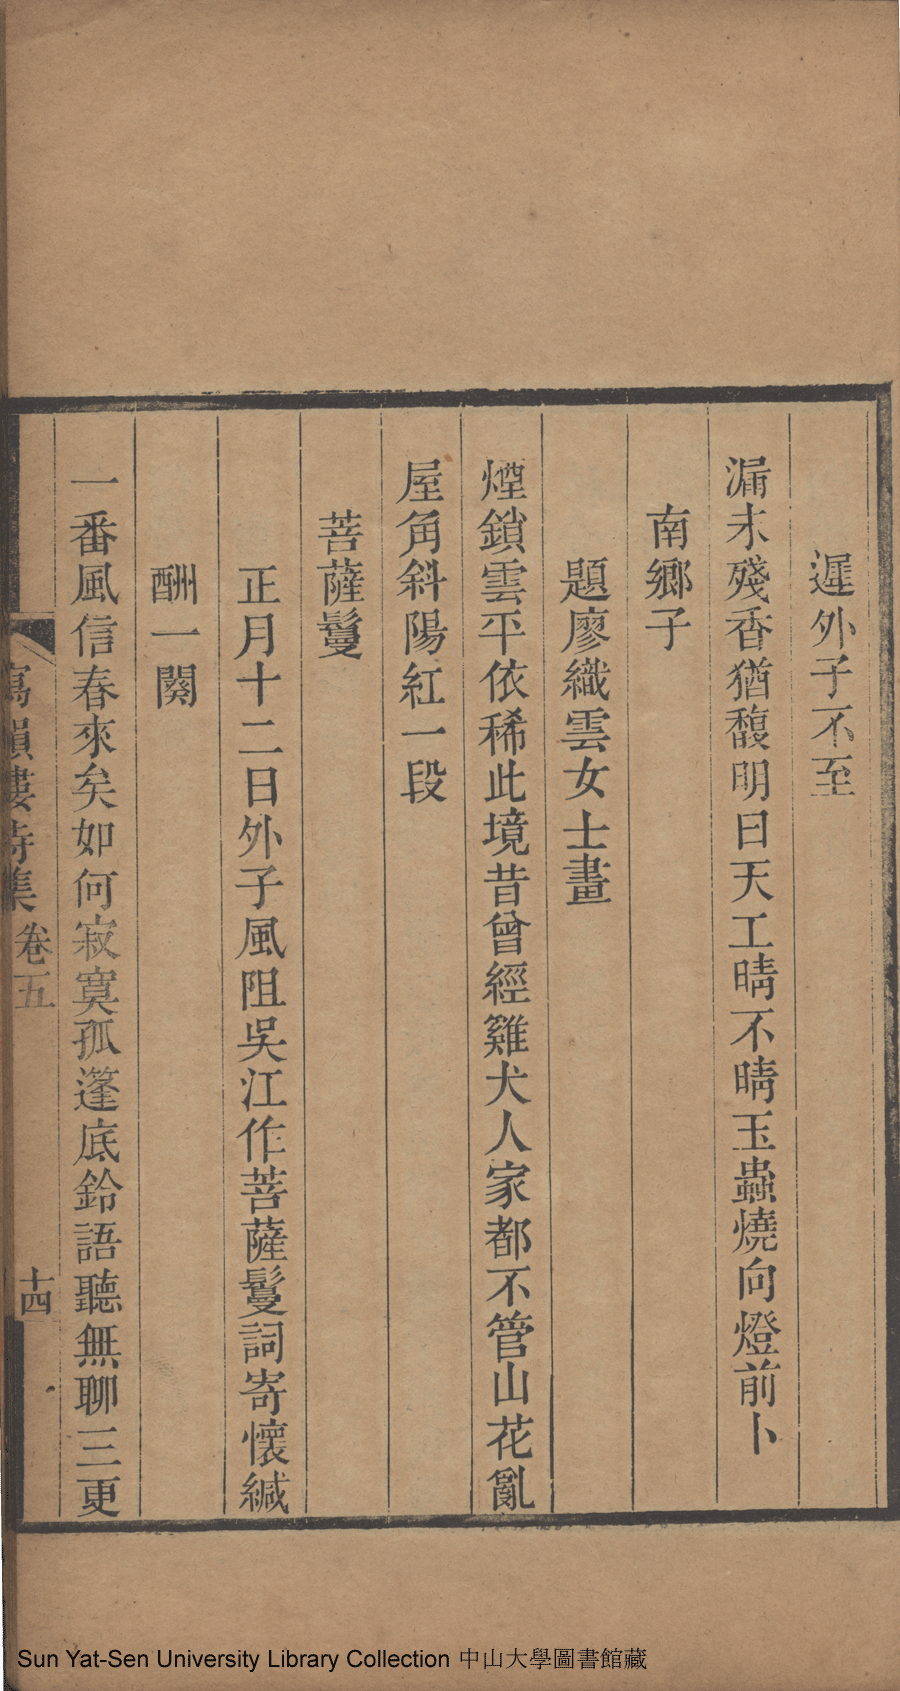 遲外子不至
漏未殘香猶馥明日天工晴不晴玉蟲燒向燈前卜
南鄉子
題廖織雲女士畫
煙鎖雲平依稀此境昔曾經雞犬人家都不管山花亂
屋角斜陽紅一段
菩薩鬘
正月十二日外子風阻吳江作菩薩鬘詞寄懷緘
酬一闋
一番風信春來矣如何寂寞孤篷底鈴語聽無聊三更
寫韻樓詩集 卷五
十四
Sun Yat-Sen University Library Collection 中山大學圖書館藏